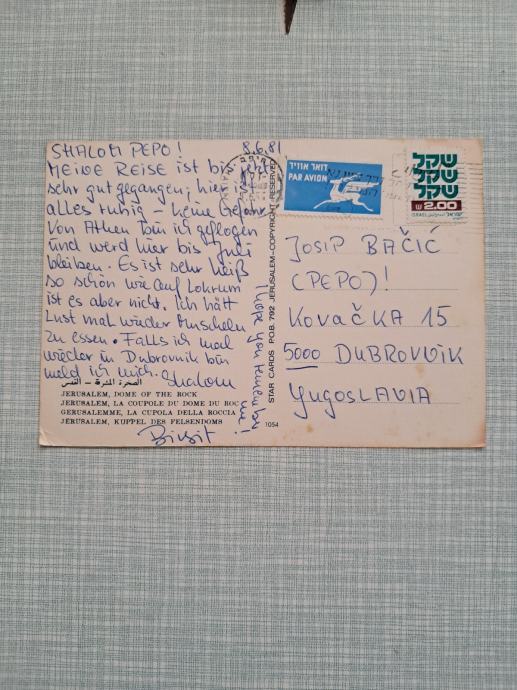 SHALOM PEPO! 8.6.81
MEINE REISE ist bis jetzt
sehr gut gegangen; hier
alles ruhig – keine Gefahr
Von Athen bin ich geflogen
und werd hier bis Juli
bleiben. Es ist sehr heiß
so schön wie auf Lokrum
ist es aber nicht. Ich hätt
Lust mal wieder Muscheln
zu essen. Falls ich mal
wieder in Dubrovnik bin
meld ich mich. Shalom
Birgit
I hope you remember
me!
الصخرة المشرفة – القدس
JERUSALEM, DOME OF THE ROCK
JERUSALEM, LA COUPOLE DU DOME DU ROC
GERUSALEMME, LA CUPOLA DELLA ROCCIA
JERUSALEM, KUPPEL DES FELSENDOMS
1054
STAR CARDS P.O.B. 792 JERUSALEM–COPYRIGHT RESERVED
דואר אוויר
PAR AVION
שקל
שקל
שקל
2.00
ISRAEL
JOSIP BAČIC
(PEPO)!
KOVAČKA 15
5000 DUBROVNIK
YUGOSLAVIA